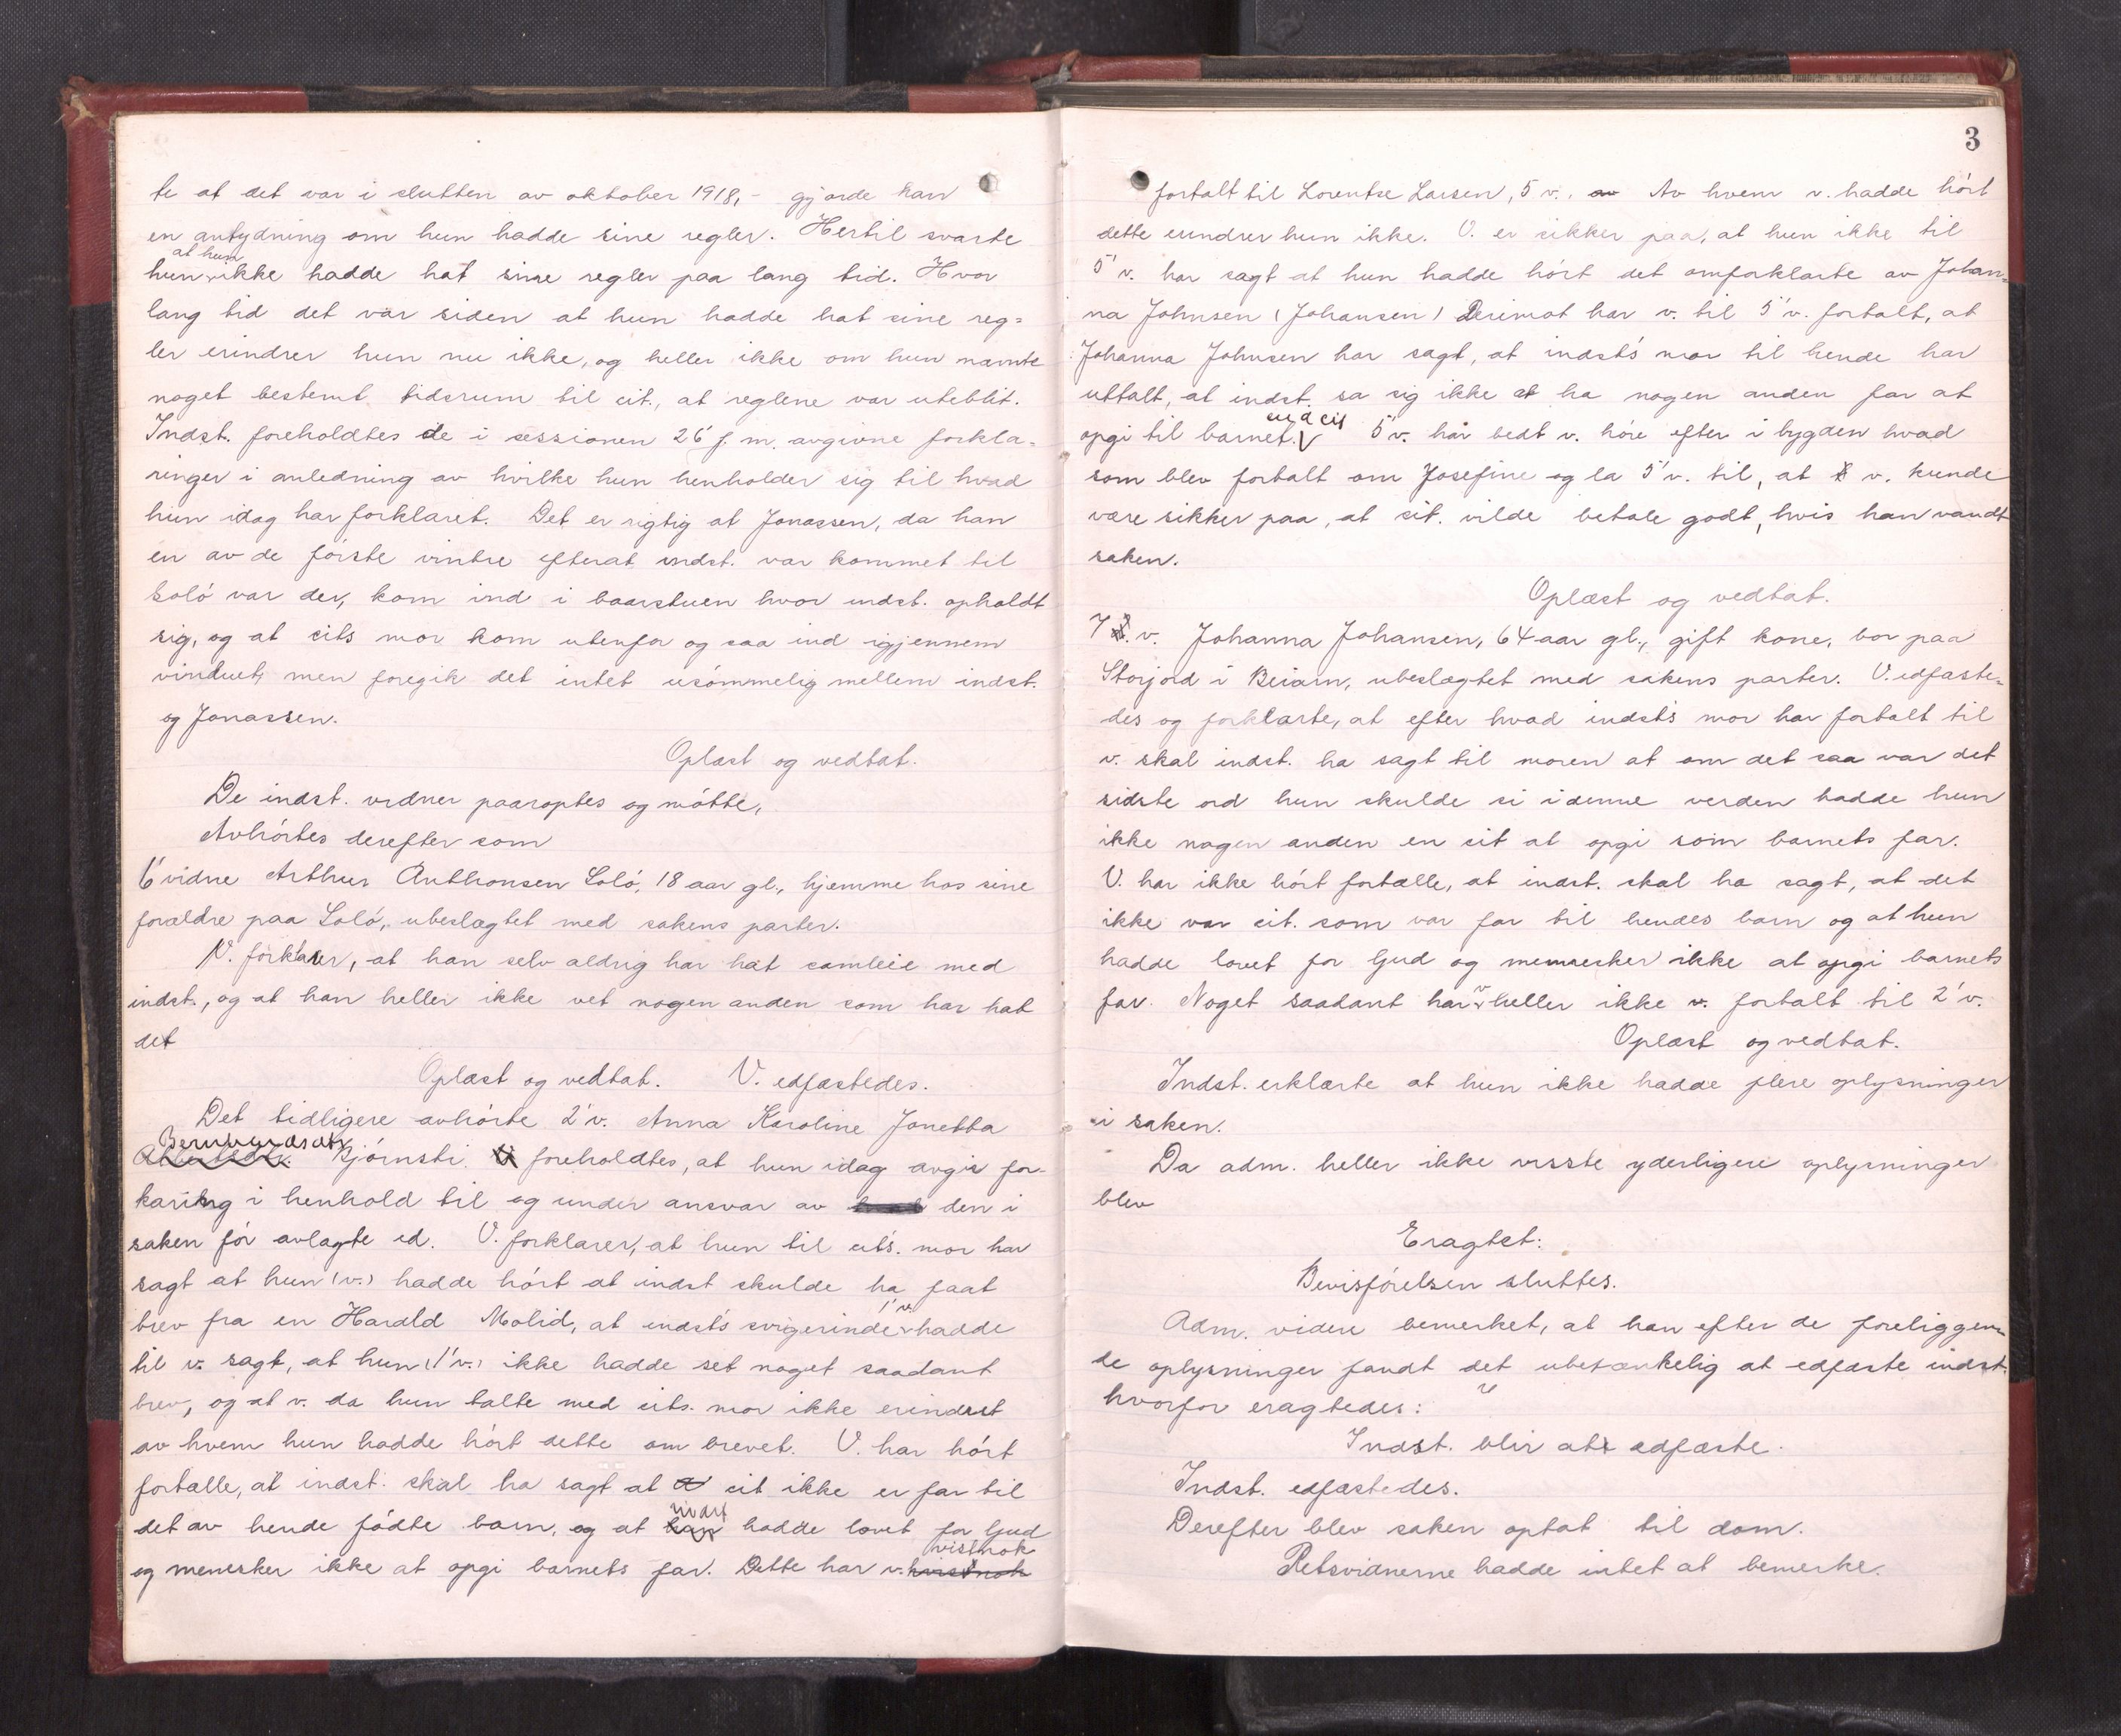 te at det var i slutten av oktober 1918, - gjorde han
en antydning om hun hadde sine regler. Hertil svarte
at hun
hun ikke hadde hat sine regler paa lang tid. Hvor
lang tid det var siden at hun hadde hat sine reg=
ler erindrer hun nu ikke, og heller ikke om hun nævnte
noget bestemt tidsrum til cit., at reglene var uteblit.
Indst. foreholdtes de i sessionen 26' f. m. avgivne forkla=
ringer i anledning av hvilke hun henholder sig til hvad
hun idag har forklaret. Det er rigtig at Jonassen, da han
en av de første vintre efterat indst. var kommet til
Solø var der, kom ind i baarstuen hvor indst. opholdt
sig, og at cits mor kom utenfor og saa ind igjennem
vinduet, men foregik det intet usømmelig mellem indst.
og Jonassen.
Oplæst og vedtat.
De indst. vidner paaroptes og møtte,
Avhørtes derefter som
6' vidne Arthur Anthonsen Solø, 18 aar gl., hjemme hos sine
forældre paa Solø, ubeslægtet med sakens parter.
V. forklarer, at han selv aldrig har hat samleie med
indst., og at han heller ikke vet nogen anden som har hat
det
Oplæst og vedtat. V. edfæstedes.
Det tidligere avhørte 2' v. Anna Karoline Jonetta
Bjørnsti. foreholdtes, at hun idag avgir for-
karing i henhold til og under ansvar av den i
saken før avlagte ed. V. forklarer, at hun til cit's. mor har
sagt at hun (v.) hadde hørt at indst skulde ha faat
1' v.
brev fra en Harald Molid, at indst's svigerinde hadde
til v. sagt, at hun (1' v.) ikke hadde set noget saadant
brev, og at v. da hun talte med cits. mor ikke erindret
av hvem hun hadde hørt dette om brevet. V. har hørt
fortælle, at indst. skal ha sagt at cit ikke er far til
det av hende fødte barn, og at hadde lovet for Gud
vistnok
og menesker ikke at opgi barnets far. Dette har v. hvistnok
3
fortalt til Lorentse Larsen, 5 v., av Av hvem v. hadde hørt
dette erindrer hun ikke. V. er sikker paa, at hun ikke til
5' v. har sagt at hun hadde hørt det omforklarte av Johan=
na Johnsen (Johansen) Derimot har v. til 5' v. fortalt, at
Johanna Johnsen har sagt, at indst's mor til hende har
uttalt, at indst. sa sig ikke at ha nogen anden far at
end cit
opgi til barnet. 5' v. har bedt v. høre efter i bygden hvad
som blev fortalt om Josefine og la 5' v. til, at v. kunde
være sikker paa, at cit. vilde betale godt, hvis han vandt
saken.
Oplæst og vedtat.
7 v. Johanna Johansen, 64 aar gl., gift kone, bor paa
Storjord i Beiarn, ubeslægtet med sakens parter. V. edfæste=
des og forklarte, at efter hvad indst's mor har fortalt til
v. skal indst. ha sagt til moren at om det saa var det
sidste ord hun skulde si i denne verden hadde hun
ikke nogen anden en cit at opgi som barnets far.
V. har ikke hørt fortælle, at indst. skal ha sagt, at det
ikke var cit. som var far til hendes barn og at hun
hadde lovet for Gud og mennesker ikke at opgi barnets
v
far. Noget saadant har heller ikke v. fortalt til 2' v.
Oplæst og vedtat.
Indst. erklærte at hun ikke hadde flere oplysninger
i saken.
Da adm. heller ikke visste yderligere oplysninger
blev
Eragtet:
Bevisførelsen sluttes.
Adm. videre bemerket, at han efter de foreliggen-
de oplysninger fandt det ubetænkelig at edfæste indst.
hvorfor eragtedes:
Indst. blir at edfæste.
Indst. edfæstedes.
Derefter blev saken optat til dom.
Retsvidnerne hadde intet at bemerke.